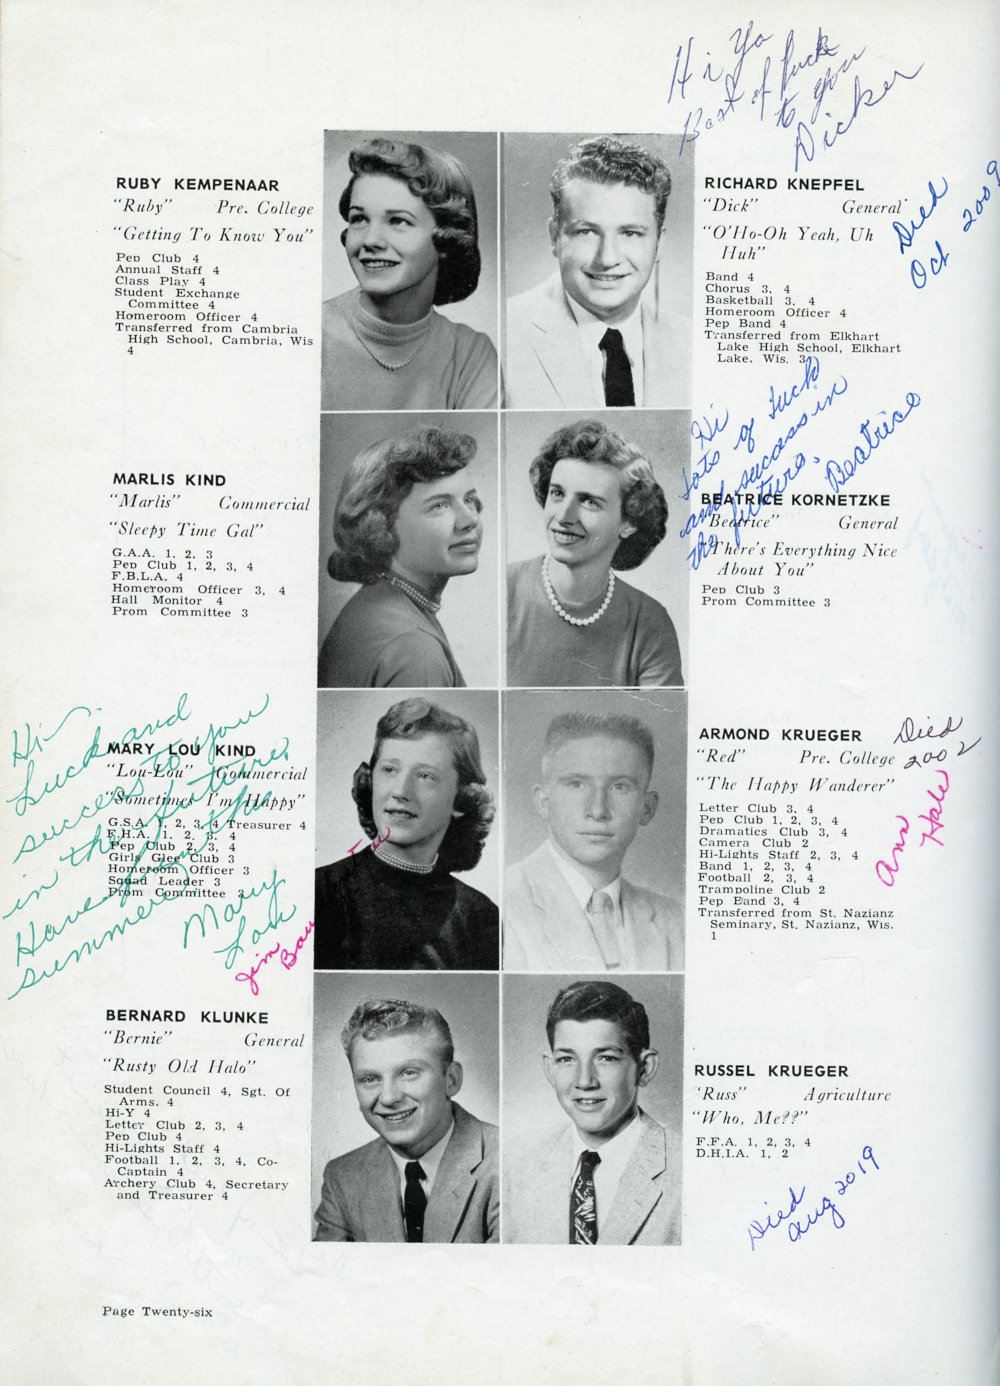 Hi Ya
Best of luck
to you
Dicker
RUBY KEMPENAAR
"Ruby" Pre. College
"Getting To Know You"
Pep Club 4
Annual Staff 4
Class Play 4
Student Exchange
Committee 4
Homeroom Officer 4
Transferred from Cambria
High School, Cambria, Wis
4
RICHARD KNEPFEL
"Dick" General
"O'Ho-Oh Yeah, Uh
Huh"
Band 4
Chorus 3, 4
Basketball 3, 4
Homeroom Officer 4
Pep Band 4
Transferred from Elkhart
Lake High School, Elkhart
Lake, Wis. 3
Died
Oct 2009
MARLIS KIND
"Marlis" Commercial
"Sleepy Time Gal"
G.A.A. 1, 2, 3
Pep Club 1, 2, 3, 4
F.B.L.A. 4
Homeroom Officer 3, 4
Hall Monitor 4
Prom Committee 3
Hi
Lots of luck
and success in
the future.
Beatrice
BEATRICE KORNETZKE
"Beatrice" General
"There's Everything Nice
About You"
Pep Club 3
Prom Committee 3
Hi.
Luck and
success to you
in the future.
Have fun this
summer.
Mary
Lou
MARY LOU KIND
"Lou-Lou" Commercial
"Sometimes I'm Happy"
G.S.A. 1, 2, 3, 4 Treasurer 4
F.H.A. 1, 2, 3, 4
Pep Club 2, 3, 4
Girls Glee Club 3
Homeroom Officer 3
Squad Leader 3
Prom Committee 3
Jim
ARMOND KRUEGER
"Red" Pre. College
"The Happy Wanderer"
Letter Club 3, 4
Pep Club 1, 2, 3, 4
Dramatics Club 3, 4
Camera Club 2
Hi-Lights Staff 2, 3, 4
Band 1, 2, 3, 4
Football 2, 3, 4
Trampoline Club 2
Pep Band 3, 4
Transferred from St. Nazianz
Seminary, St. Nazianz, Wis.
1
Died
2002
Ann
Hale
BERNARD KLUNKE
"Bernie" General
"Rusty Old Halo"
Student Council 4, Sgt. Of
Arms. 4
Hi-Y 4
Letter Club 2, 3, 4
Pep Club 4
Hi-Lights Staff 4
Football 1, 2, 3, 4, Co-
Captain 4
Archery Club 4, Secretary
and Treasurer 4
RUSSEL KRUEGER
"Russ" Agriculture
"Who, Me??"
F.F.A. 1, 2, 3, 4
D.H.I.A. 1, 2
Died
Aug 2019
Page Twenty-six